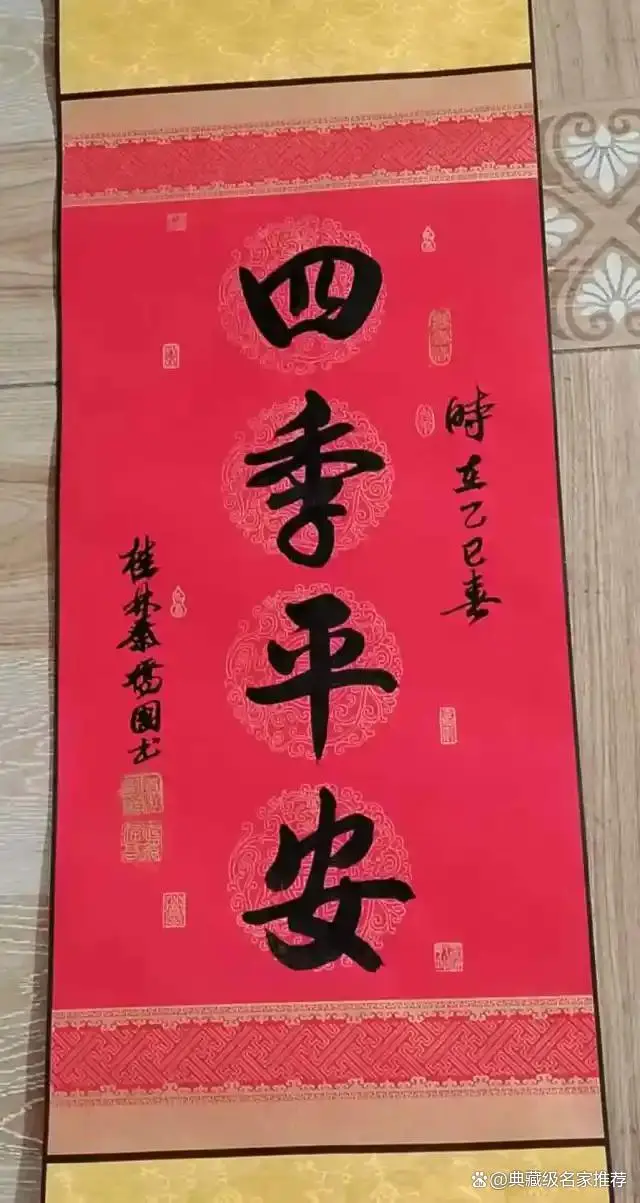 四季平安
時在乙巳春
桂林秦橋國书
@典藏级名家推荐